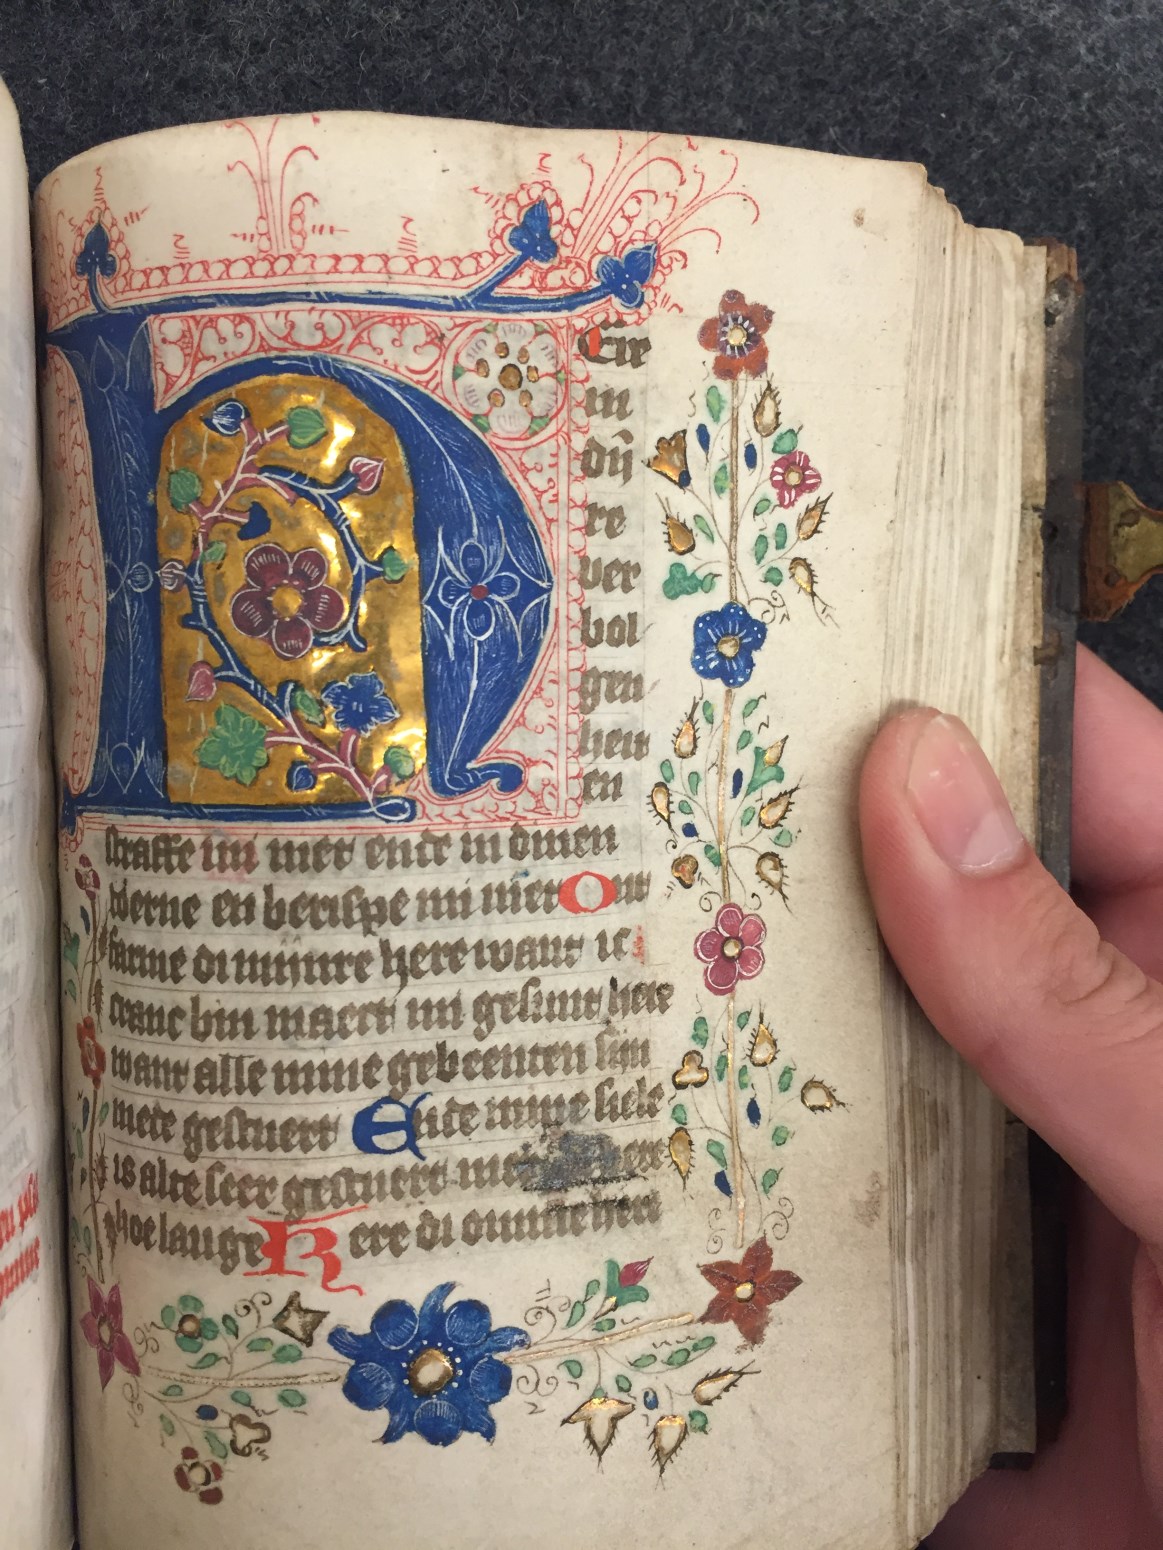 H
Ere
in
dīj
re
ver
bol
gen
heit
en
straffe mi niet ende in dinen
toerne en berispe mi niet Ont
farme di mijnre here want ic
cranc bin maect mi gesunt here
want alle mine gebeenten sijn
mede gestuert Ende mine siele
is alte seer gestuert
hoe lange Kere di omme here